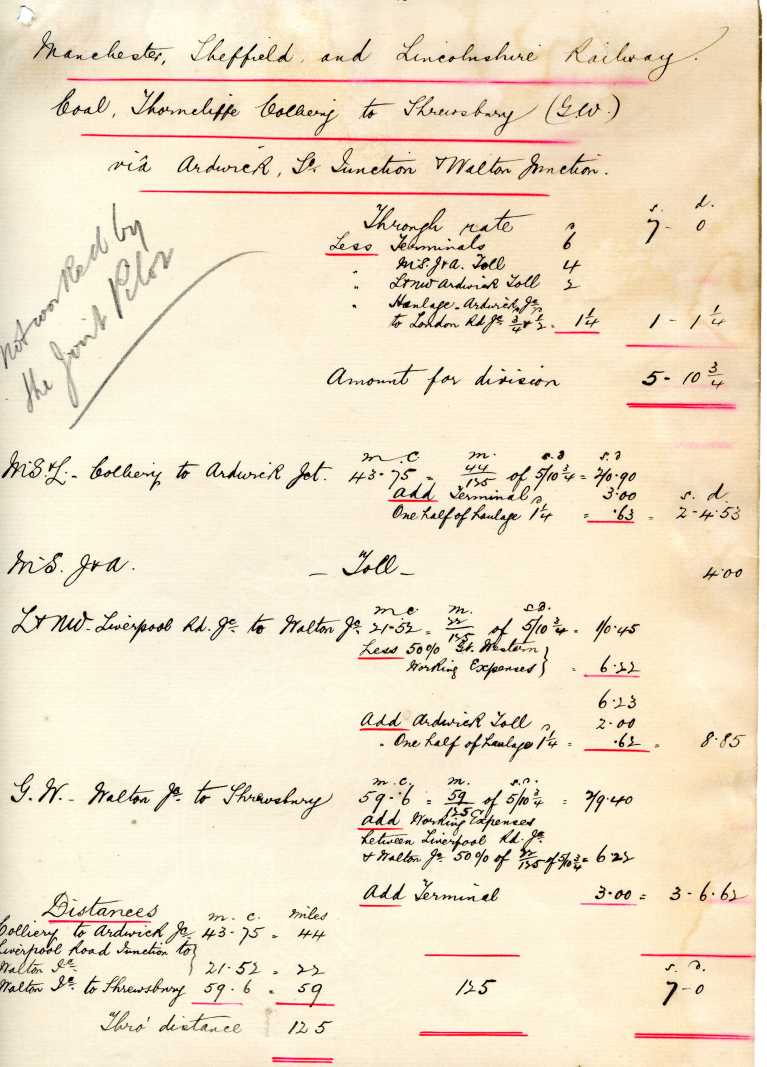 Manchester, Sheffield, and Lincolnshire Railway.
Coal, Thorncliffe Colliery to Shrewsbury (G.W.)
viâ Ardwick, Junction & Walton Junction.
Not worked by
the Joint Pilot
s. d.
Through rate d 7 - 0
Less Terminals 6
" M.S.J.&A. Toll 4
" L&NW Ardwick Toll 2
" Haulage - Ardwick Jc.
to London Rd Jc. 3/4 & 1/2 = 1 1/4 1 - 1 1/4
Amount for division 5 - 10 3/4
m. c m. s d s. d
M.S.&L. - Colliery to Ardwick Jct. 43 - 75 = 44/125 of 5/10 3/4 = 2/0.90
Add Terminal 3.00 s. d.
One half of haulage 1 1/4 = .63 = 2 - 4.53
M.S. J&A. - Toll - 4.00
m. c. m. s. d.
L&NW - Liverpool Rd. Jc. to Walton Jc. 21-52 = 22/125 of 5/10 3/4 = 1/0.45
Less 50% Gt. Western
Working Expenses } = 6.22
6.23
Add Ardwick Toll 2.00
" One half of haulage 1 1/4 = .62 = 8.85
m. c. m. s. d.
G. W. - Walton Jc. to Shrewsbury 59 - 6 = 59/125 of 5/10 3/4 = 2/9.40
Add Working Expenses
between Liverpool Rd. Jc.
& Walton Jc. 50% of 22/125 of 5/10 3/4 = 6.22
Add Terminal 3.00 = 3 - 6.62
Distances m. c. Miles
Colliery to Ardwick Jc. 43-75 = 44
Liverpool Road Junction to }
Walton Jc. 21.52 = 22 s. d.
Walton Jc. to Shrewsbury 59.6 = 59 125 7 - 0
Thro' distance 125